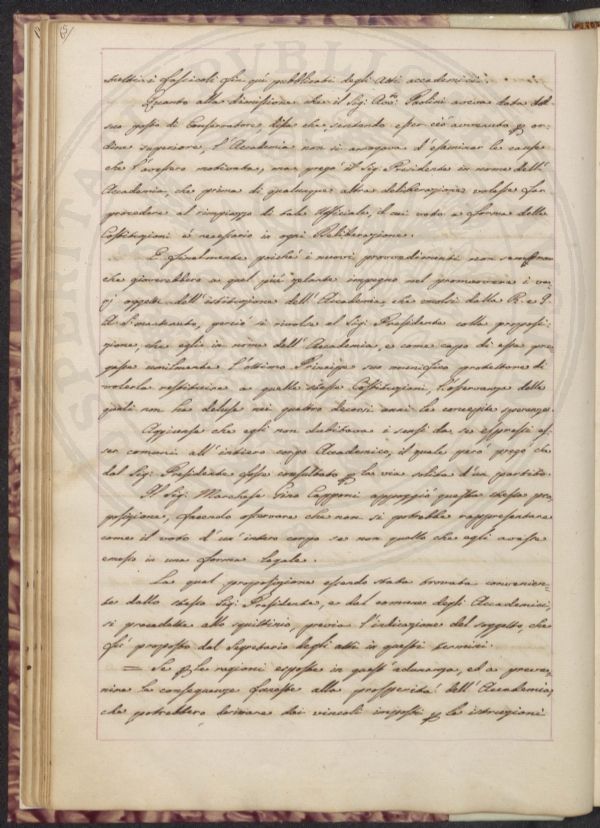 5
scelti i fascicoli fin qui pubblicati degli Atti accademici.
Quanto alla dimissione che il Sig. Avv. Paolini aveva data del
suo posto di Conservatore, disse che, sentendo esser ciò avvenuto per or-
dine superiore, l'Accademia non si arrogava d'esaminar le cause
che l'avessero motivata, ma pregò il Sig. Presidente in nome dell'
Accademia, che prima di qualunque altra deliberazione volesse far
procedere al rimpiazzo di tale Uffiziale, il cui voto a forma delle
Costituzioni è necessario in ogni Deliberazione.
E finalmente poiché i nuovi provvedimenti non
che gioverebbero a quel più zelante impegno nel promuovere i va-
rj oggetti dell'istituzione dell'Accademia, che mostrò dalla R. e I.
A. S. perciò si rivolse al Sig. Presidente colla proposi-
zione, che egli in nome dell'Accademia, e come capo di essa pre-
gasse umilmente l'ottimo Principe suo munifico protettore di
volerla restituire a quelle stesse Costituzioni, l'osservanza delle
quali non ha deluse nei quattro decorsi anni le concepite speranze.
Aggiunse che egli non dubitava i sensi da se espressi es-
ser comuni all'intiero corpo Accademico, il quale però pregò che
dal Sig. Presidente fosse consultato per la via solita d'un partito.
Il Sig. Marchese Gino Capponi appoggiò questa stessa pro-
posizione, facendo osservare che non si potrebbe rappresentare
come il voto d'un intero corpo se non quello che egli avesse
emesso in una forma legale.
La qual proposizione essendo stata trovata convenien-
te dallo stesso Sig. Presidente, e dal comune degli Accademici,
si procedette allo squittinio, previa l'indicazione del soggetto, che
fu proposto dal Segretario degli atti in questi termini.
= Se per le ragioni esposte in quest'adunanza, ed a preve-
nire le conseguenze funeste alla prosperità dell'Accademia,
che potrebbero derivare dai vincoli imposti per le istruzioni